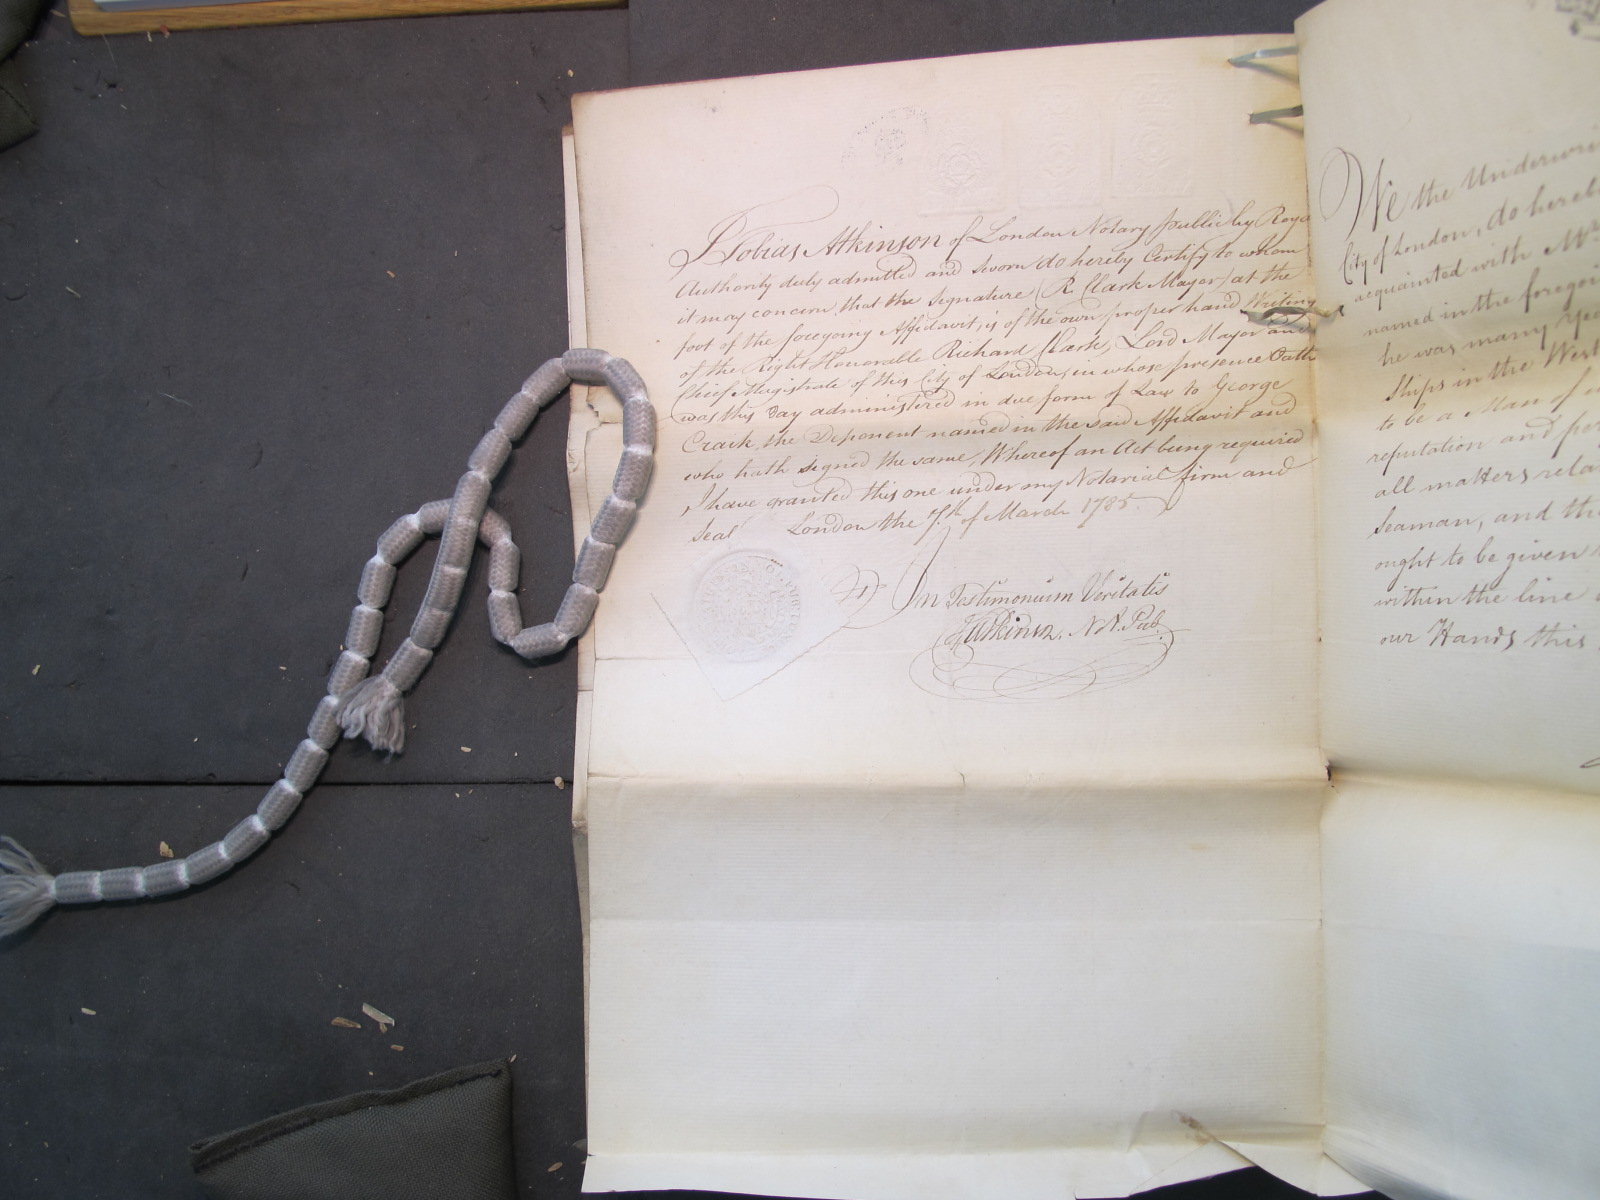 I Tobias Atkinson of London Notary public by Roya
Authority duly admitted and sworn do hereby Certify to whom
it may concern, that the Signature (R. Clark Mayor) at the
foot of the foregoing Affidavit, is of the own proper hand Writing
of the Right Honorable Richard Clark, Lord Mayor and
Chief Magistrate of this City of London, in whose presence Oath
was this day administered in due form of Law to George
Crack the Deponent named in the said Affidavit and
who hath signed the same, Whereof an Act being required
I have granted this one under my Notarial firm and
Seal London the 7th of March 1785.
In Testimonium Veritatis
Atkinson, Not. Pub.
We the Underwri
City of London, do hereb
acquainted with Mr
named in the foregoi
he was many Yea
Ships in the West
to be a Man of
reputation and per
all matters rela
Seaman, and tha
ought to be given
within the line
our Hands this